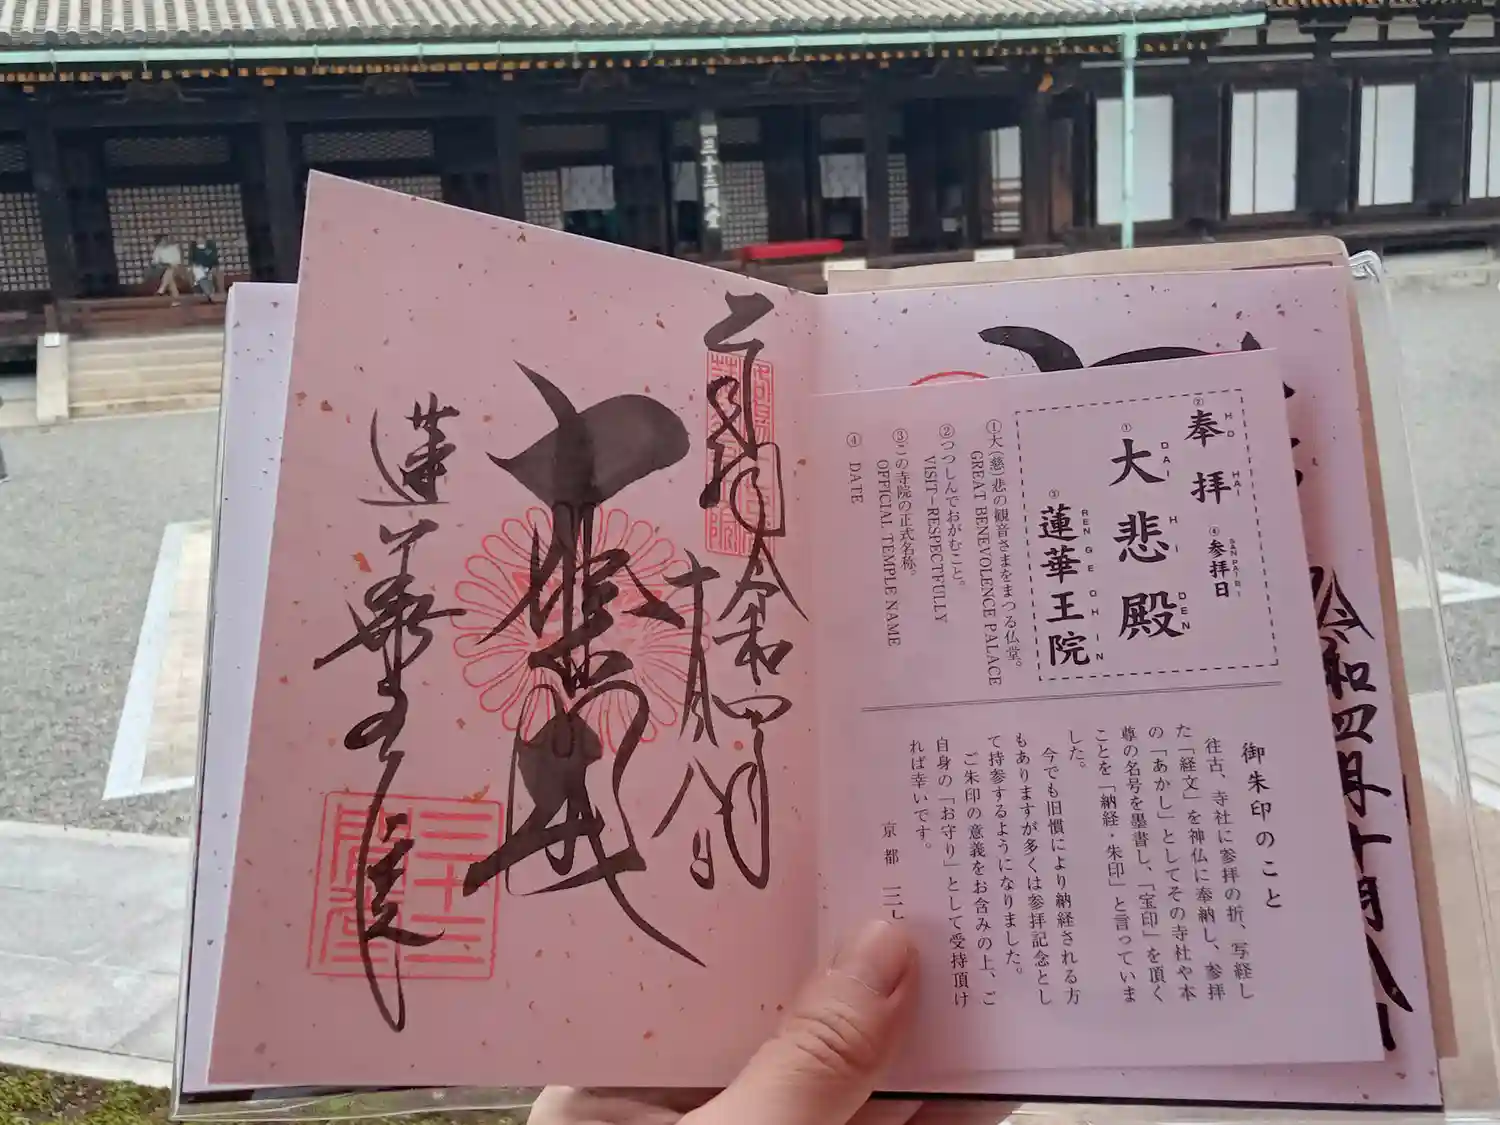 三十三間堂
奉拝
HO HAI
②
④参拝日
SAN PAI BI
①大悲殿
DAI HI DEN
③蓮華王院
REN GE OH IN
①大(慈)悲の観音さまをまつる仏堂。
GREAT BENEVOLENCE PALACE
②つつしんでおがむこと。
VISIT–RESPECTFULLY
③この寺院の正式名称。
OFFICIAL TEMPLE NAME
④ DATE
御朱印のこと
往古、寺社に参拝の折、写経し
た「経文」を神仏に奉納し、参拝
の「あかし」としてその寺社や本
尊の名号を墨書し、「宝印」を頂く
ことを「納経・朱印」と言っていま
した。
今でも旧慣により納経される方
もありますが多くは参拝記念とし
て持参するようになりました。
ご朱印の意義をお含みの上、ご
自身の「お守り」として受持頂け
れば幸いです。
京都 三
令和四年十月八日
奉拝
令和四年十月八日
大悲殿
蓮華王院
三十三
間堂